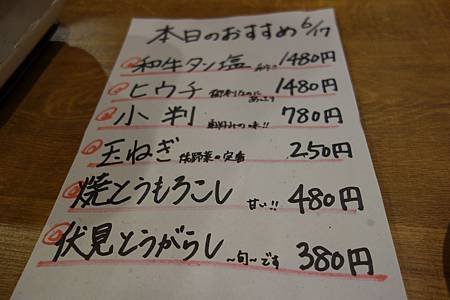 本日のおすすめ 6/17
和牛タン塩 1480円
ヒウチ 1480円
小判 780円
玉ねぎ 焼野菜の定番 250円
焼とうもろこし 甘い!! 480円
伏見とうがらし ～旬～です 380円